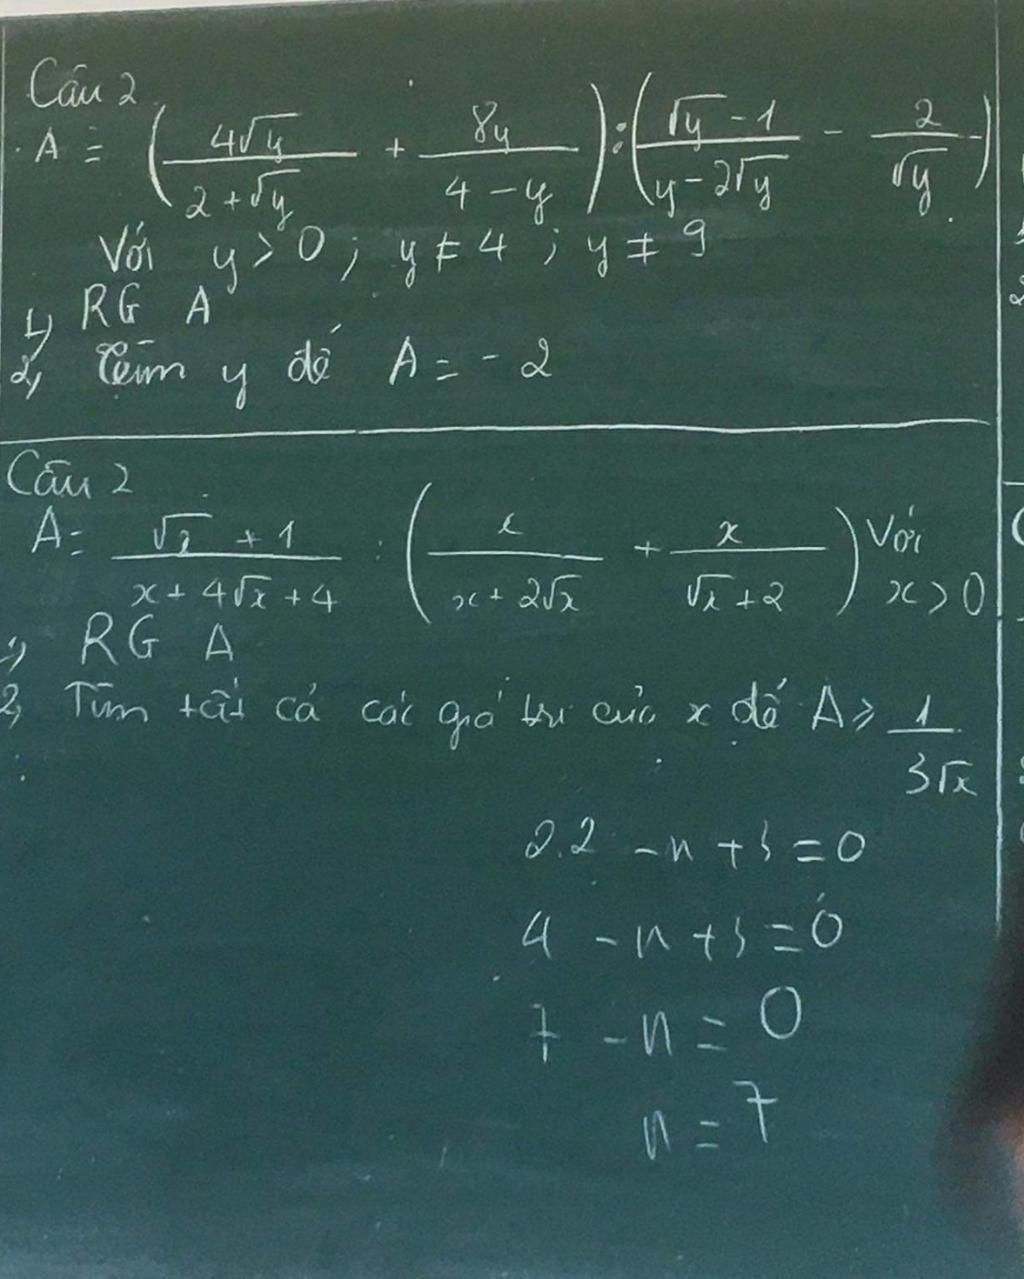 Câu 2
A = (4√y / (2 + √y) + 8y / (4 - y)) : ((√y - 1) / (y - 2√y) - 2 / √y)
Với y > 0 ; y ≠ 4 ; y ≠ 9
1, RG A
2, Tìm y để A = - 2
Câu 2
A = (√x + 1) / (x + 4√x + 4) : (x / (x + 2√x) + x / (√x + 2)) Với x > 0
1, RG A
2, Tìm tất cả các giá trị của x để A ≥ 1 / (3√x)
2.2 - n + 3 = 0
4 - n + 3 = 0
7 - n = 0
n = 7